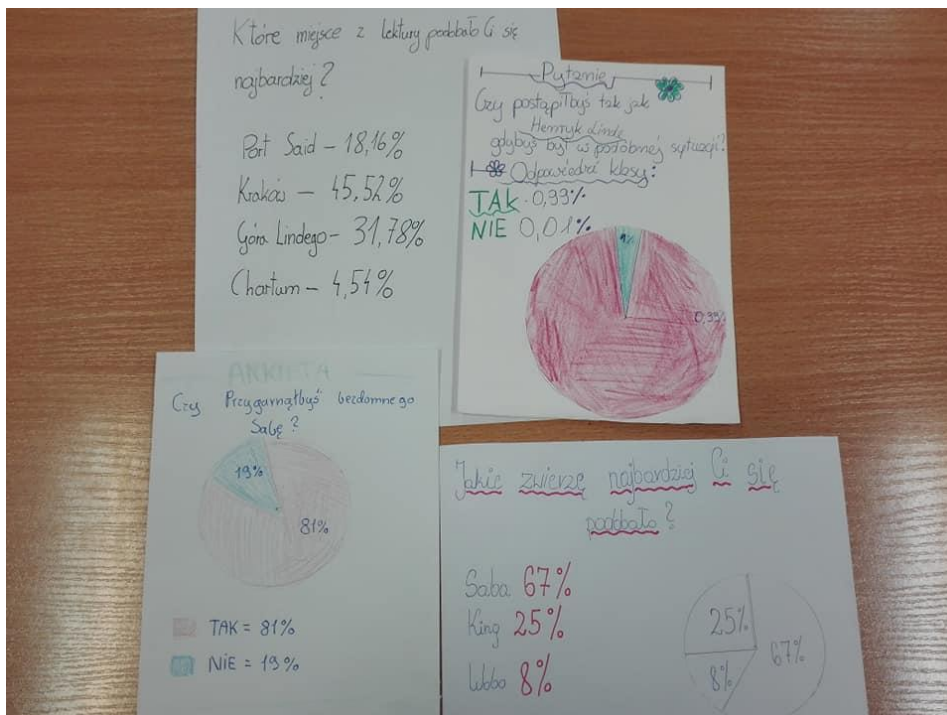 Które miejsce z lektury podobało Ci się
najbardziej?
Port Said – 18,16%
Kraków – 45,52%
Góra Lindego – 31,78%
Chartum – 4,54%
Pytanie
Czy postąpiłbyś tak jak
Henryk Linde
gdybyś był w podobnej sytuacji?
Odpowiedzi klasy:
TAK - 0,99%
NIE 0,01%
1%
0,99%
ANKIETA
Czy Przygarnąłbyś bezdomnego
Sabę?
19%
81%
TAK = 81%
NiE = 19%
Jakie zwierzę najbardziej Ci się
podobało?
Saba 67%
King 25%
Wobo 8%
25%
67%
8%